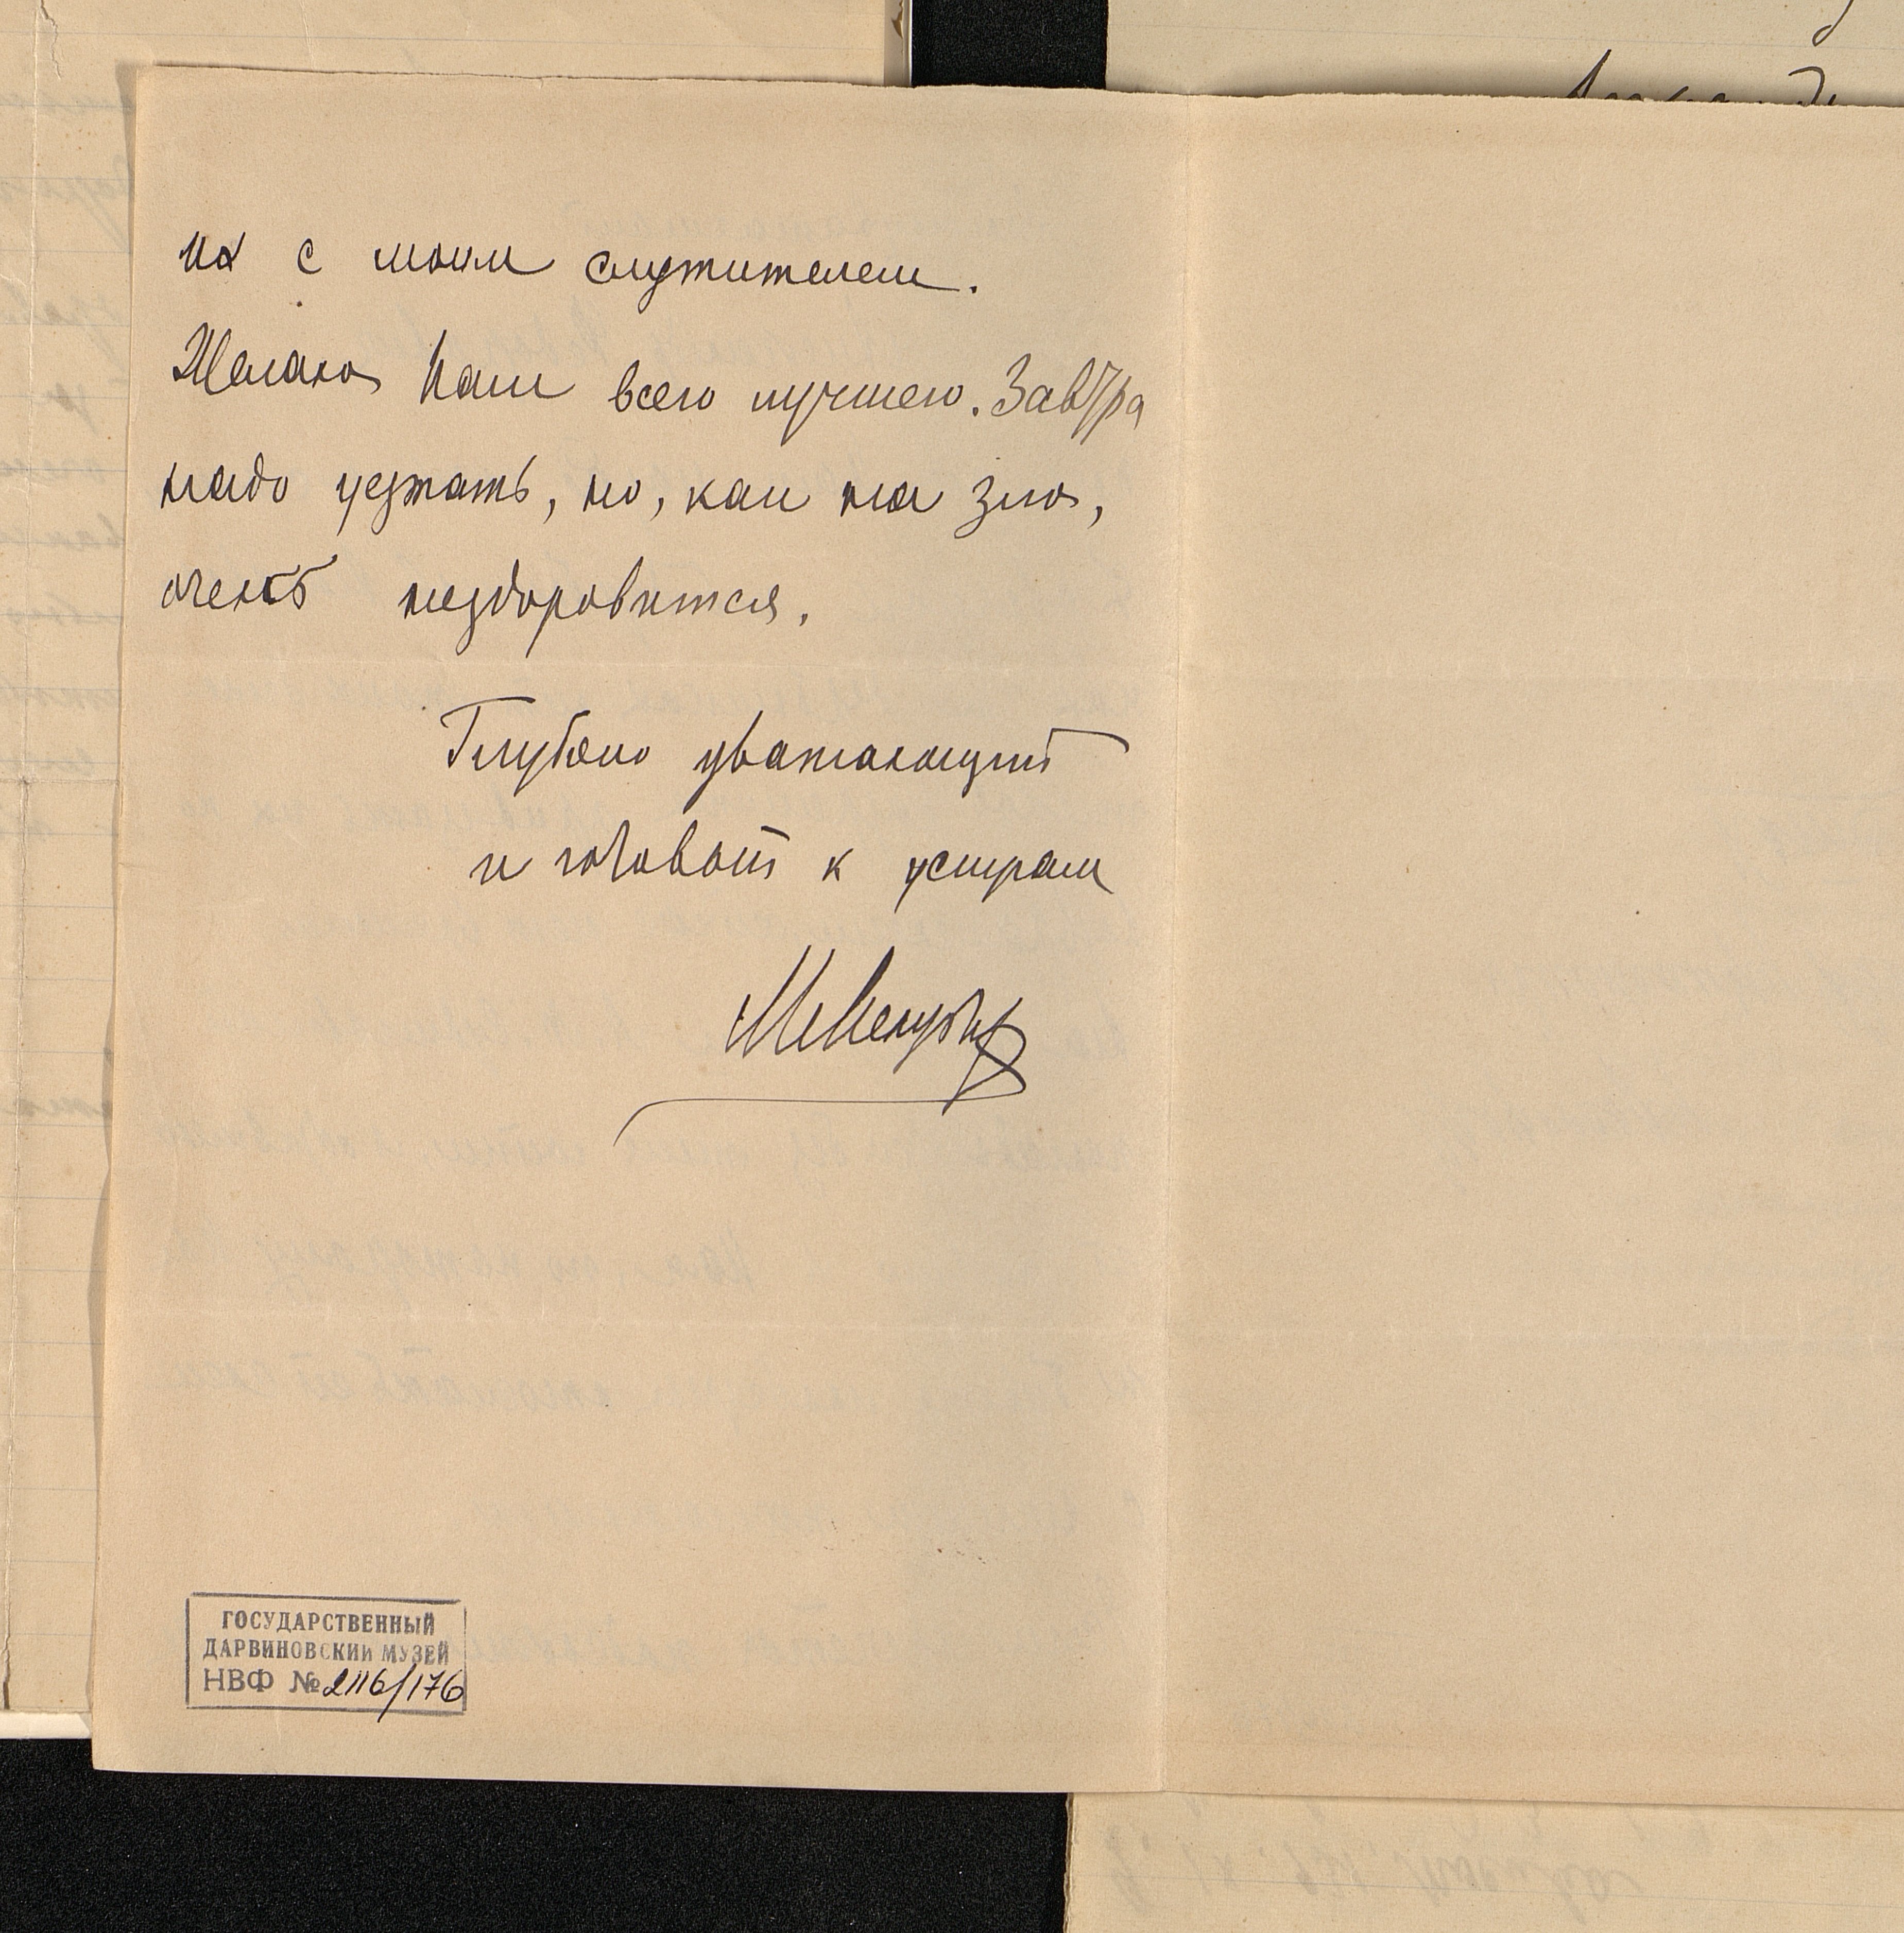 их с моим служителем.
Желаю Вам всего лучшего. Завтра
надо уезжать, но, как на зло,
очень нездоровится.
Глубоко уважающий
и готовый к услугам
ГОСУДАРСТВЕННЫЙ
ДАРВИНОВСКИЙ МУЗЕЙ
НВФ № 2116/176